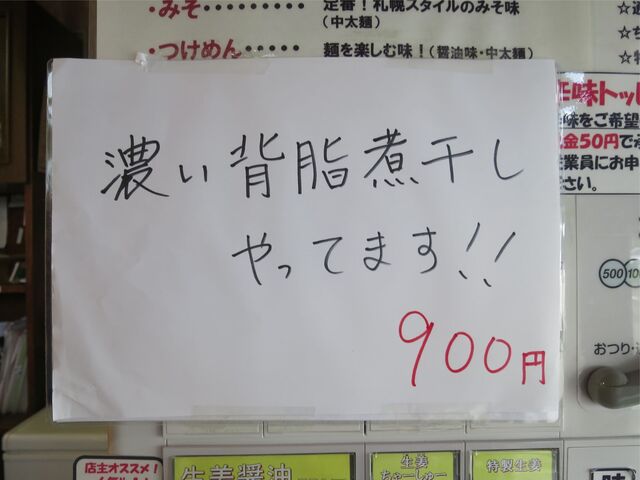 ・みそ・・・・・・・・・定番！札幌スタイルのみそ味
（中太麺）
・つけめん・・・・・麺を楽しむ味！（醤油味・中太麺）
濃い背脂煮干し
やってます!!
900円
辛味トッピ
味をご希望
金50円で
業員にお申
ださい。
500
おつり・
店主オススメ！
生姜醤油
生姜
ちゃーしゅー
特製生姜